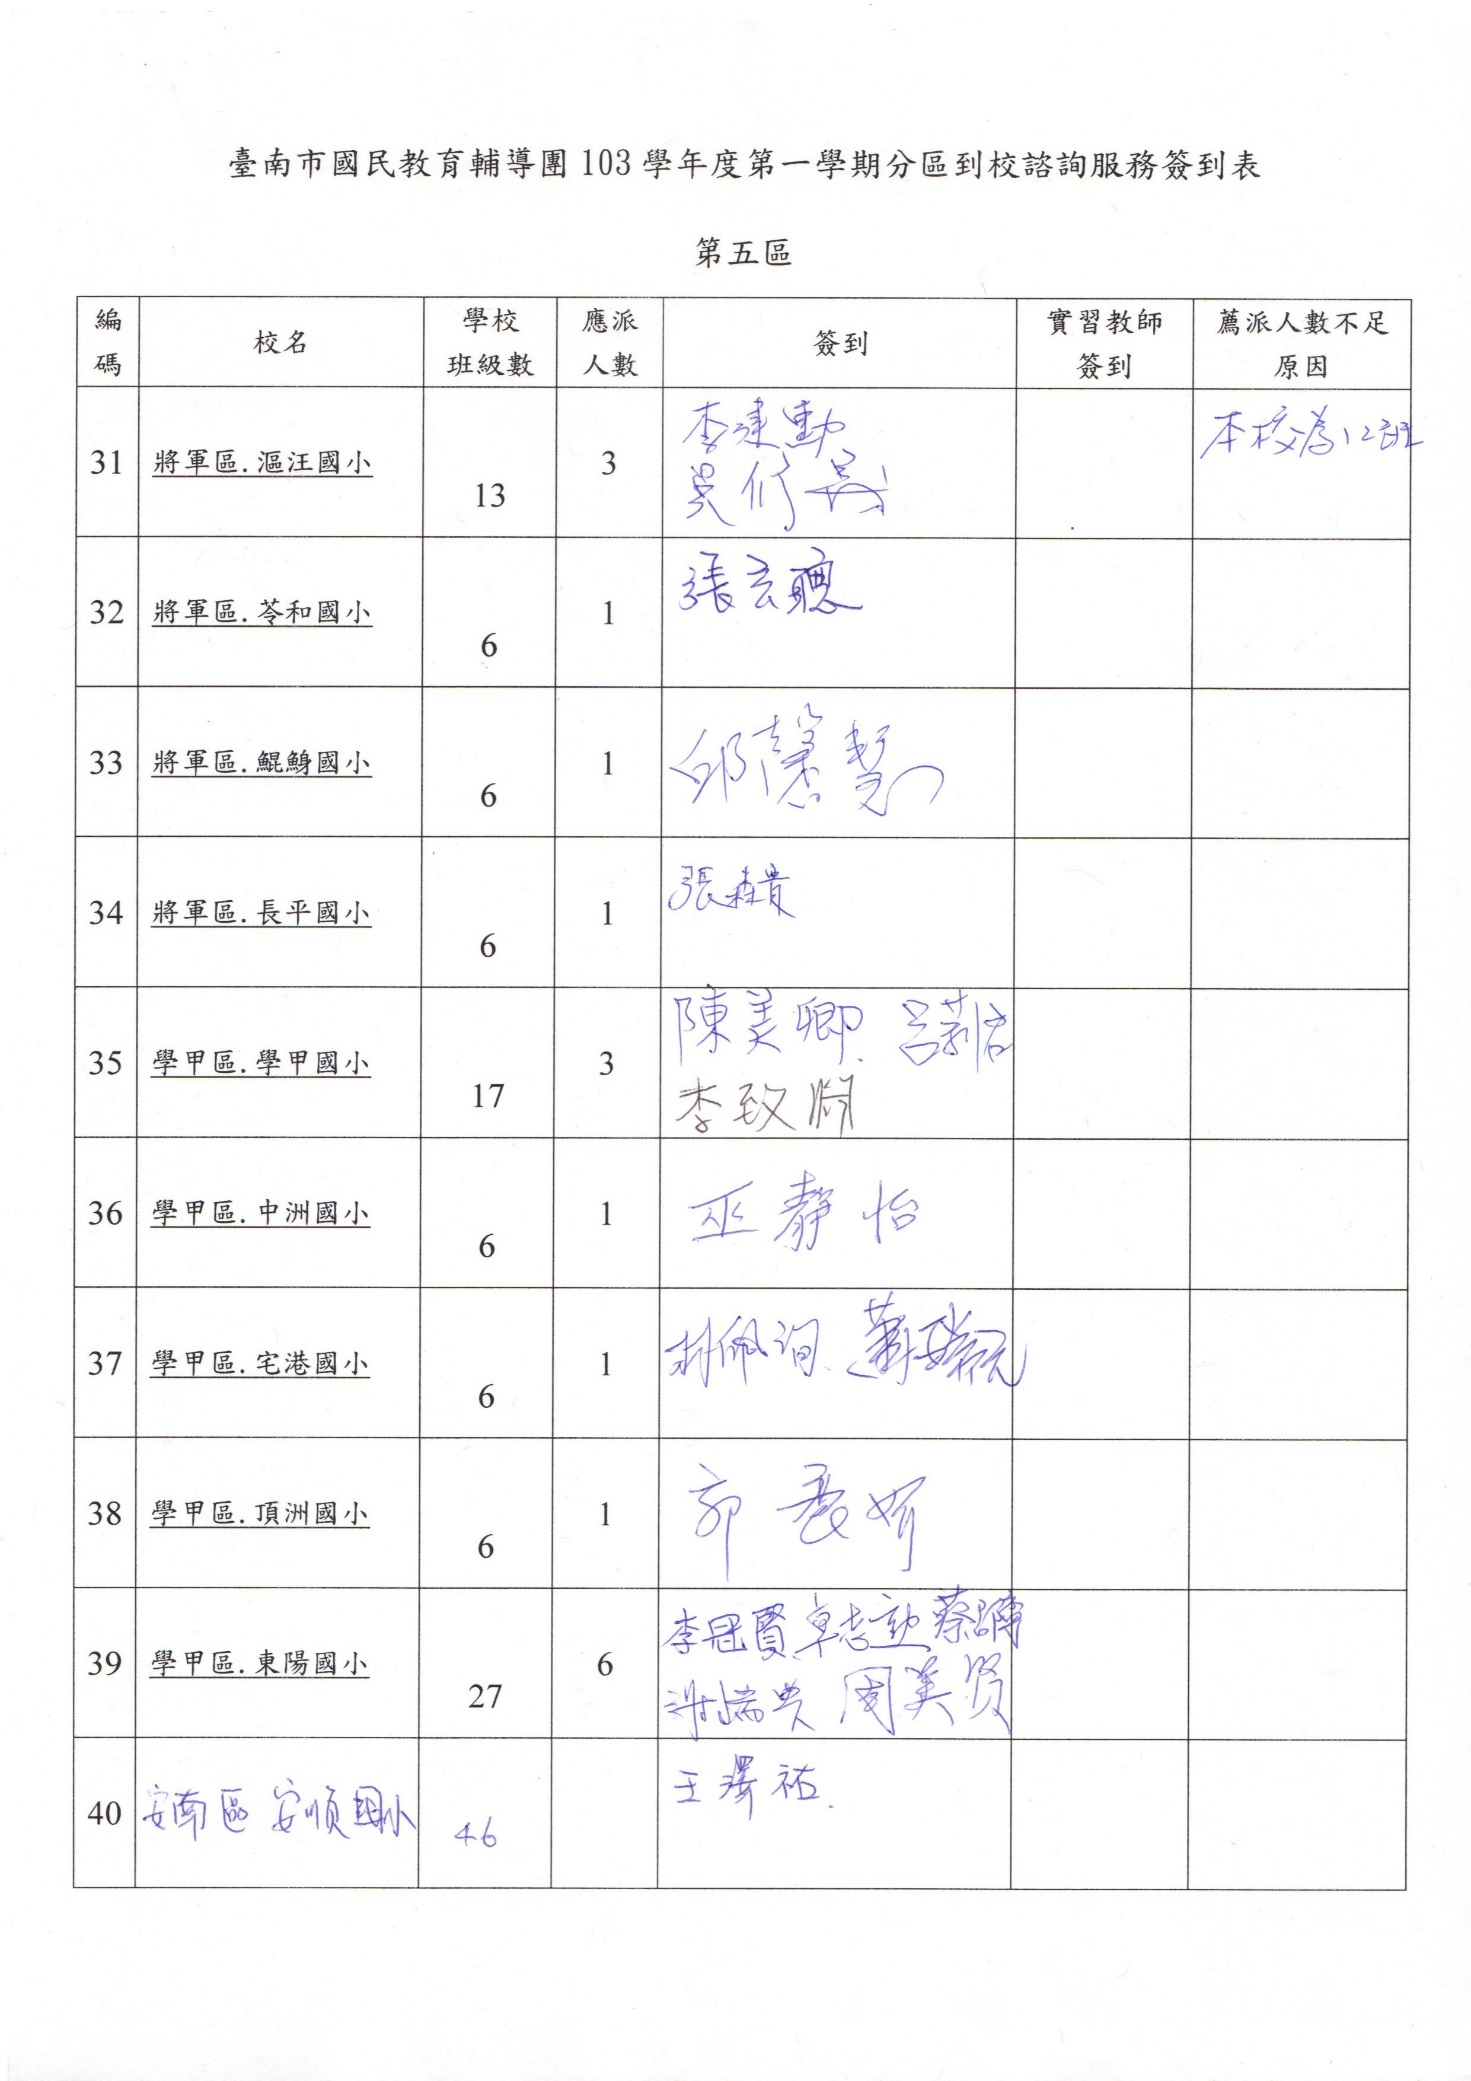 臺南市國民教育輔導團 103 學年度第一學期分區到校諮詢服務簽到表
第五區
編碼 校名 學校班級數 應派人數 簽到 實習教師簽到 薦派人數不足原因
31 將軍區.漚汪國小 13 3 李建勳 本校為12班
吳修
32 將軍區.苓和國小 6 1 張玄聰
33 將軍區.鯤鯓國小 6 1 邱馨慧
34 將軍區.長平國小 6 1 張森貴
35 學甲區.學甲國小 17 3 陳美卿. 呂莉君
李致淵
36 學甲區.中洲國小 6 1 巫靜怡
37 學甲區.宅港國小 6 1 林佩詢. 蕭
38 學甲區.頂洲國小 6 1 郭
39 學甲區.東陽國小 27 6 李冠賢 卓志勳 蔡
謝端貴 周美賢
40 安南區 安順國小 46 王澤祐.